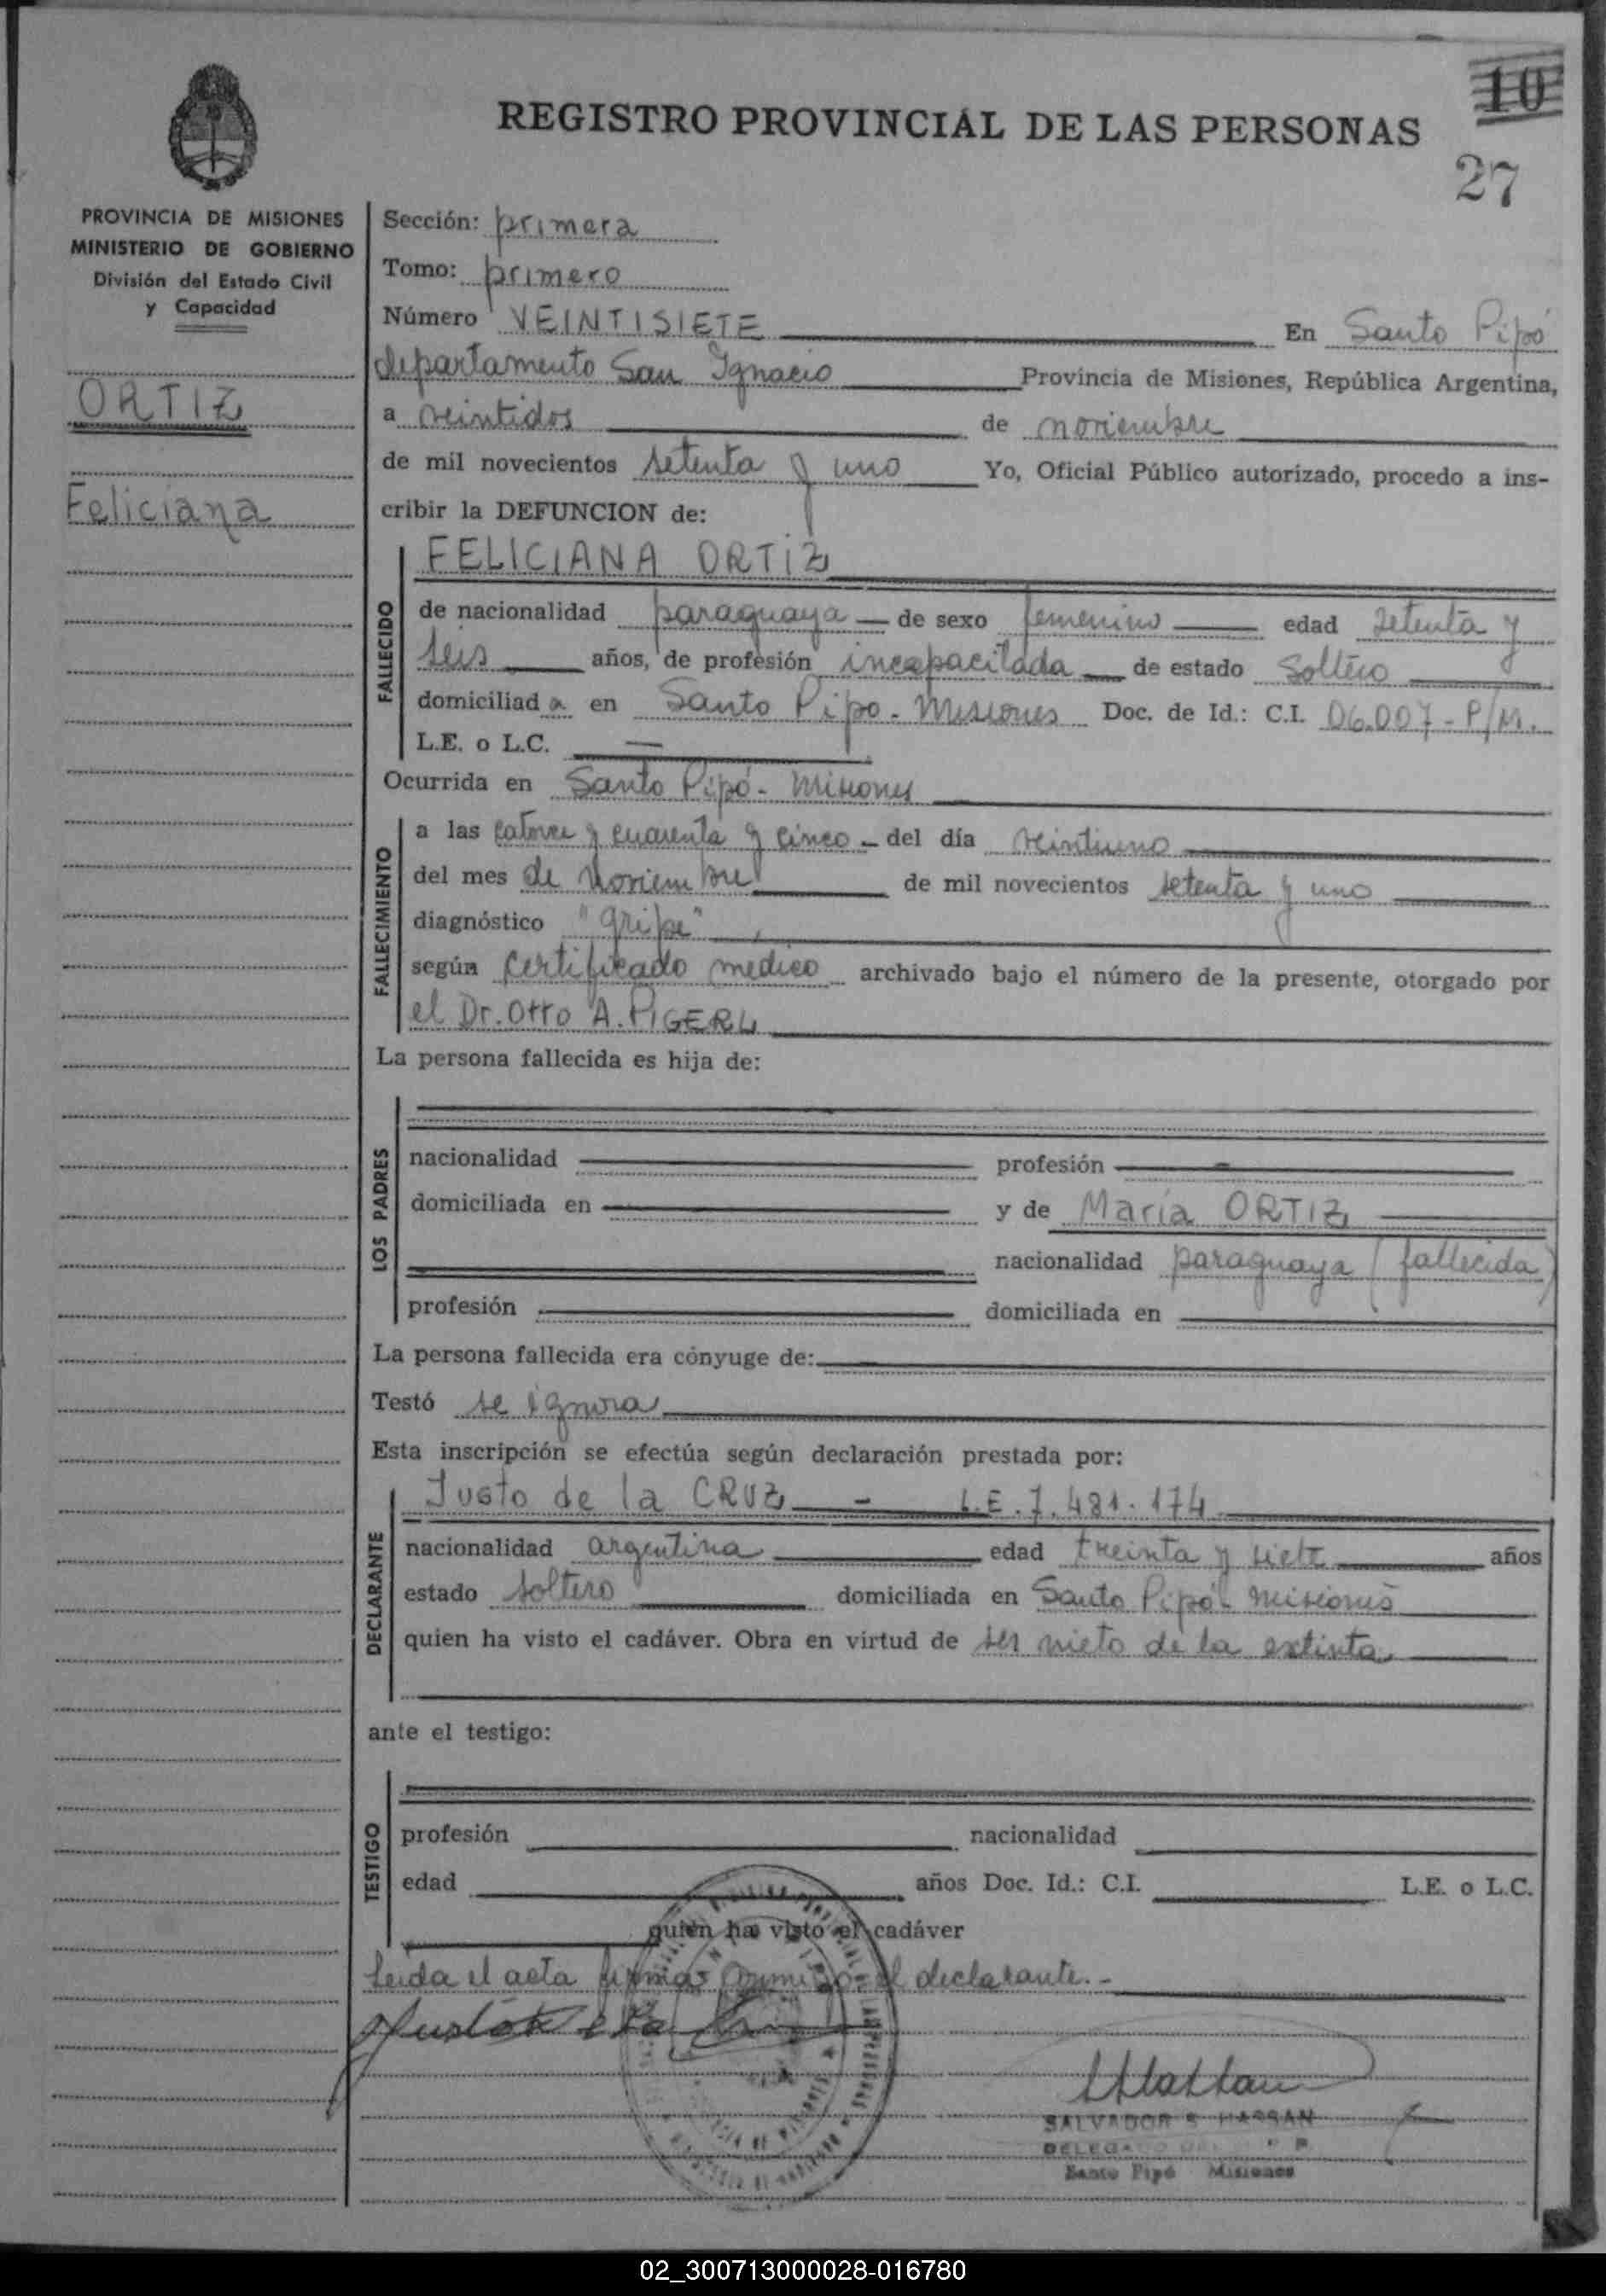 10
REGISTRO PROVINCIAL DE LAS PERSONAS
27
PROVINCIA DE MISIONES
MINISTERIO DE GOBIERNO
División del Estado Civil
y Capacidad
ORTIZ
Feliciana
Sección: primera
Tomo: primero
Número VEINTISIETE En Santo Pipó
departamento San Ignacio Provincia de Misiones, República Argentina,
a veintidos de noviembre
de mil novecientos setenta y uno Yo, Oficial Público autorizado, procedo a ins-
cribir la DEFUNCION de:
FALLECIDO
FELICIANA ORTIZ
de nacionalidad paraguaya — de sexo femenino — edad setenta y
seis años, de profesión incapacitada — de estado soltero
domiciliad a en Santo Pipo - Misiones Doc. de Id.: C.I. 06.007 - P/M.
L.E. o L.C. —
Ocurrida en Santo Pipó - Misiones
FALLECIMIENTO
a las catorce y cuarenta y cinco - del día veintiuno
del mes de Noviembre de mil novecientos setenta y uno
diagnóstico "gripe"
según certificado medico archivado bajo el número de la presente, otorgado por
el Dr. Otto A. PIGERL
La persona fallecida es hija de:
LOS PADRES
nacionalidad profesión
domiciliada en y de María ORTIZ
nacionalidad paraguaya (fallecida)
profesión domiciliada en
La persona fallecida era cónyuge de:
Testó se ignora
Esta inscripción se efectúa según declaración prestada por:
DECLARANTE
Justo de la CRUZ - L.E. 7.481.174
nacionalidad argentina edad treinta y siete años
estado soltero domiciliada en Santo Pipó - Misiones
quien ha visto el cadáver. Obra en virtud de ser nieto de la extinta
ante el testigo:
TESTIGO
profesión nacionalidad
edad años Doc. Id.: C.I. L.E. o L.C.
quien ha visto el cadáver
Leida el acta firma conmigo el declarante.-
Justo de la Cruz
SALVADOR S. HASSAN
DELEGADO DEL R. P.
Santo Pipó Misiones
02_300713000028-016780